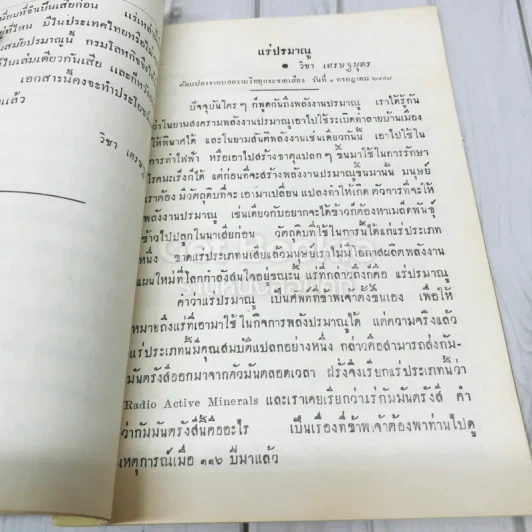 เนี่ยมที่จันปันเสียก่อน แร่เหล่านี้
อยู่ที่ไหน มีในประเทศไทยหรือไม่
สมัยปรมาณูนี้ กรมโลหกิจจึงได้
ไว้ในเล่มเดียวกันเสีย และก็หวัง
เอกสารนี้คงจะทำประโยชน์
แล้ว
วิชา เศรษฐบุตร
แร่ปรมาณู
วิชา เศรษฐบุตร
คัดแปลจากบทความวิทยุกระจายเสียง วันที่ ๑ กรกฎาคม ๒๔๙๗
ปัจจุบันใครๆ ก็พูดกันถึงพลังงานปรมาณู เราได้รู้กัน
ว่าในยามสงครามพลังงานปรมาณูเอาไปใช้ระเบิดทำลายบ้านเมือง
ให้พินาศได้ และในยามสันติพลังงานเช่นเดียวกันนี้ เอาไปใช้ใน
การทำไฟฟ้า หรือเอาไปสร้างธาตุแปลกๆ ขึ้นมาใช้ในการรักษา
โรคมะเร็งก็ได้ แต่ก่อนที่จะสร้างพลังงานปรมาณูขึ้นมานั้น มนุษย์
เราต้อง มีวัตถุดิบที่จะเอามาเปลี่ยน แปลงทำให้เกิด ตัวการที่จะให้
พลังงานปรมาณู เช่นเดียวกับอยากจะได้ข้าวก็ต้องหาเมล็ดพันธุ์
ข้าวไปปลูกในนาเสียก่อน วัตถุดิบที่ใช้ในการนี้ได้แก่แร่ประเภท
หนึ่ง ขาดแร่ประเภทนี้เสียแล้วมนุษย์เราไม่มีโอกาสผลิตพลังงาน
แผนใหม่ที่โลกกำลังสนใจอยู่ขณะนี้ แร่ที่กล่าวถึงก็คือ แร่ปรมาณู
คำว่าแร่ปรมาณู เป็นศัพท์ที่ข้าพเจ้าตั้งขึ้นเอง เพื่อให้
หมายถึงแร่ที่เอามาใช้ ในกิจการพลังปรมาณูได้ แต่ความจริงแล้ว
แร่ประเภทนี้มีคุณสมบัติแปลกอย่างหนึ่ง กล่าวคือสามารถส่งกัม-
มันตรังสีออกมาจากตัวมันตลอดเวลา ฝรั่งจึงเรียกแร่ประเภทนี้ว่า
Radio Active Minerals และเราเคยเรียกว่าแร่กัมมันตรังสี คำ
ว่ากัมมันตรังสีนี้คืออะไร เป็นเรื่องที่ข้าพเจ้าต้องพาท่านไปดู
เหตุการณ์เมื่อ ๑๑๖ ปีมาแล้ว